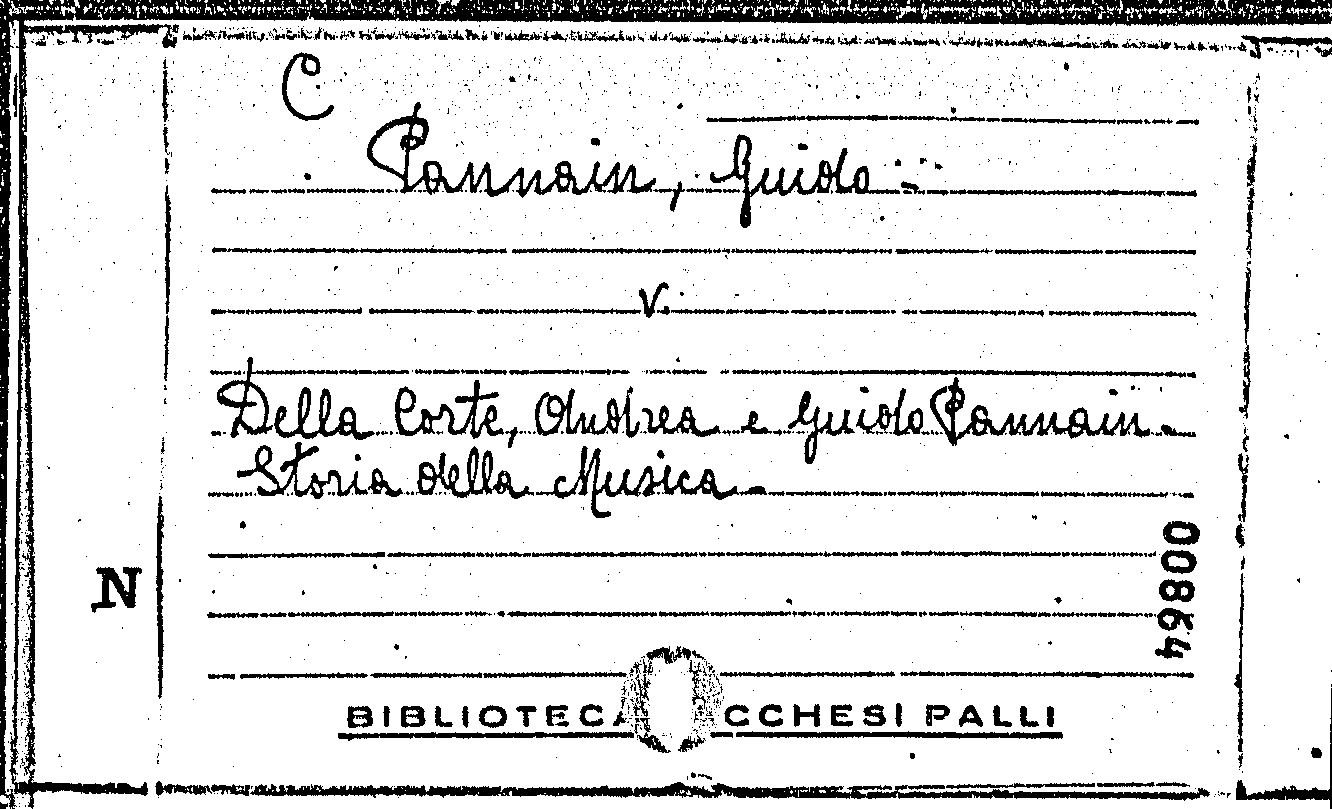 C
Pannain, Guido -
v.
Della Corte, Andrea e Guido Pannain -
Storia della Musica -
00864
N
BIBLIOTECA CCHESI PALLI